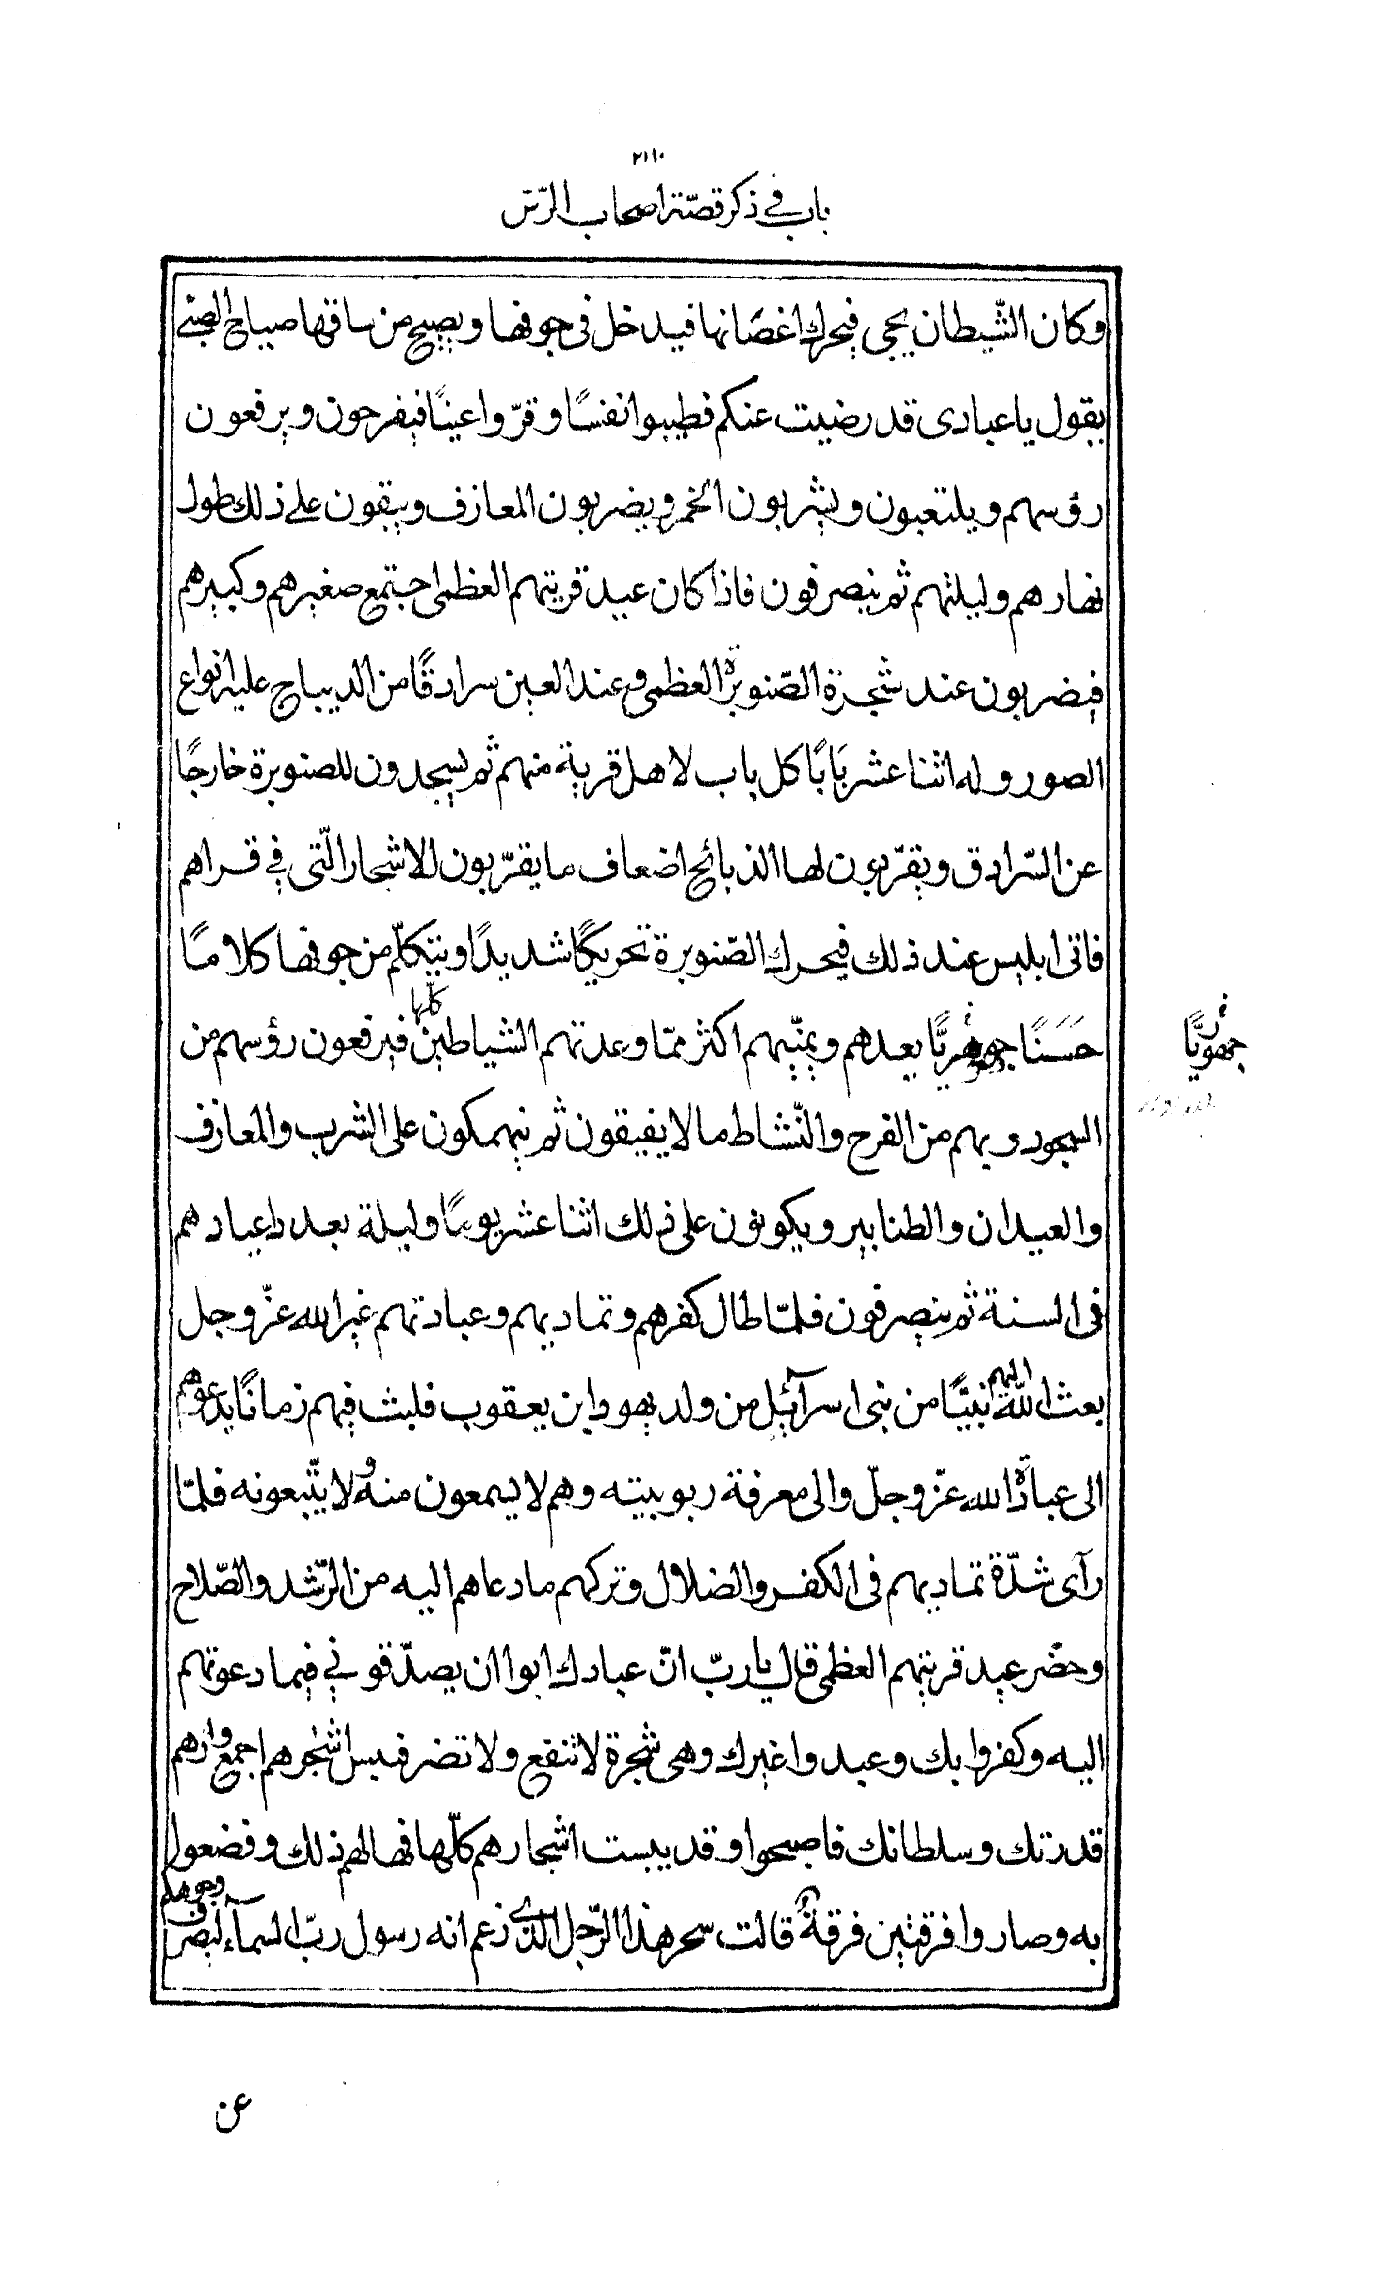 ٢١١٠
باب في ذكر قصّة اصحاب الرّسّ
وكان الشّيطان يجى فيحرك اغصَانها فيدخل فى جوفها ويصيح من ساقها صياح الصّبّي
يقول يا عبادى قد رضيت عنكم فطيبوا نفسًا وقرّوا عينًا فيفرحون ويرفعون
رؤسهم ويلتعبون ويشربون الخمر ويضربون المعازف ويبقون على ذلك طول
نهارهم وليلتهم ثم ينصرفون فاذا كان عيد قريتهم العظمى اجتمع صغيرهم وكبيرهم
فيضربون عند شجرة الصّنوبرة العظمى وعند العين سرادقًا من الديباج عليه انواع
الصور وله اثنا عشر بَابًا كل باب لاهل قرية منهم ثم يسجدون للصنوبرة خارجًا
عن السّرادق ويقرّبون لها الذبائح اضعاف ما يقرّبون للاشجار الّتى في قراهم
فاتى ابليس عند ذلك فيحرك الصّنوبرة تحريكًا شديدًا ويتكلّم من جوفها كلامًا
حَسَنًا جوهريًّا يعدهم ويمنّيهم اكثر ممّا وعدتهم الشياطين كلّها فيرفعون رؤسهم من
جهوريًّا
السجود وبهم من الفرح والنّشاط ما لا يفيقون ثم ينهمكون على الشرب والمعازف
والعيدان والطنابير ويكونون على ذلك اثنا عشر يومًا وليلة بعدد اعيادهم
فى السنة ثم ينصرفون فلمّا طال كفرهم وتماديهم وعبادتهم غير الله عزّ وجل
بعث الله اليهم نبيًّا من بنى اسرآئيل من ولد يهودا بن يعقوب فلبث فيهم زمانًا يدعوهم
الى عبادة الله عزّ وجلّ والى معرفة ربوبيته وهم لا يسمعون منه ولا يتّبعونه فلمّا
رآى شدّة تماديهم فى الكفر والضلال وتركهم ما دعاهم اليه من الرّشد والصّلاح
وحضر عيد قريتهم العظمى قال يا ربّ انّ عبادك ابوا ان يصدّقوني فيما دعوتهم
اليه وكفروا بك وعبدوا غيرك وهى شجرة لا تنفع ولا تضر فيبس اشجرهم اجمع وارهم
قدرتك وسلطانك فاصبحوا وقد يبست اشجارهم كلّها فهالهم ذلك وفضعوا
به وصاروا فرقتين فرقة قالت سحر هذا الرّجل الذى زعم انه رسول ربّ السمآء ليصرف وجوهكم
عن